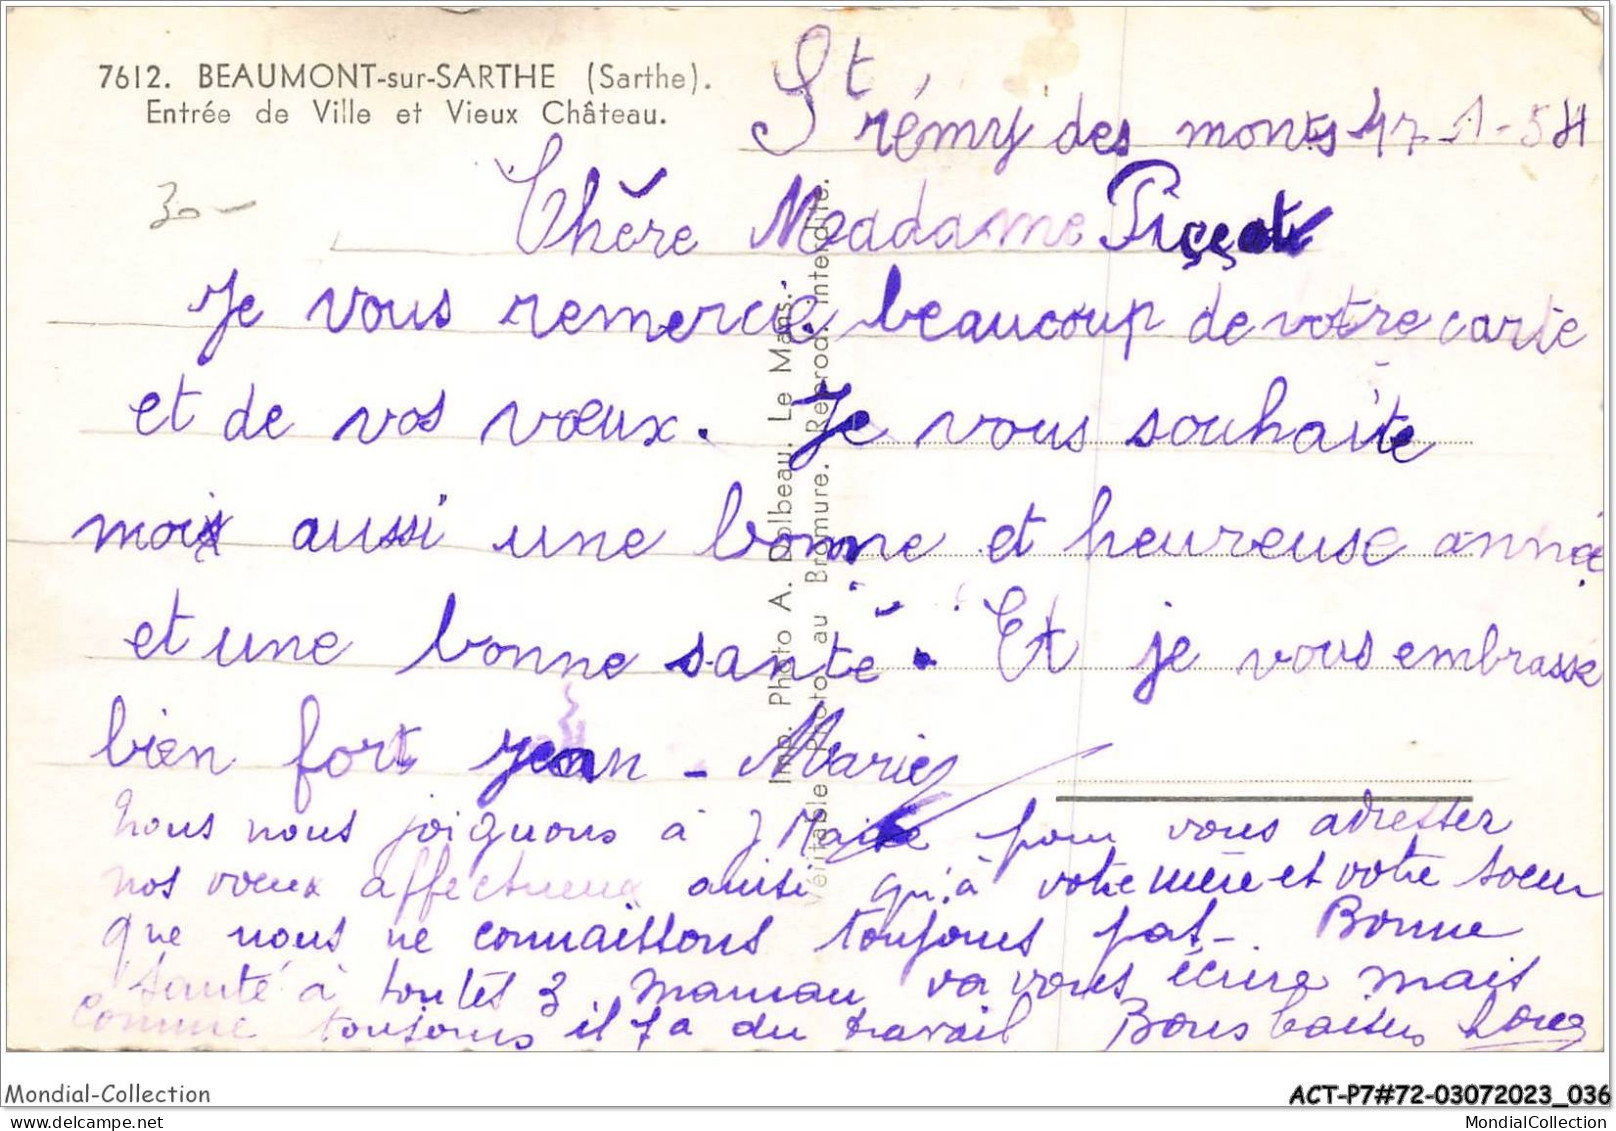 7612. BEAUMONT-sur-SARTHE (Sarthe).
Entrée de Ville et Vieux Château.
St rémy des monts 17-1-54
30-
Chère Madame
Je vous remercie beaucoup de votre carte
et de vos vœux. Je vous souhaite
moi aussi une bonne et heureuse année
et une bonne santé. Et je vous embrasse
bien fort jean-Marie
nous nous joignons à J Marie pour vous adresser
nos voeux affectueux ainsi qu'à votre mère et votre soeur
que nous ne connaissons toujours pas-. Bonne
santé à toutes 3. maman va vous écrire mais
comme toujours il y a du travail Bons baisers
Imp. Photo A. Dolbeau. Le Mans.-
Véritable Photo au Bromure. Reprod. interdite.
Mondial-Collection
ACT-P7#72-03072023_036
MondialCollection